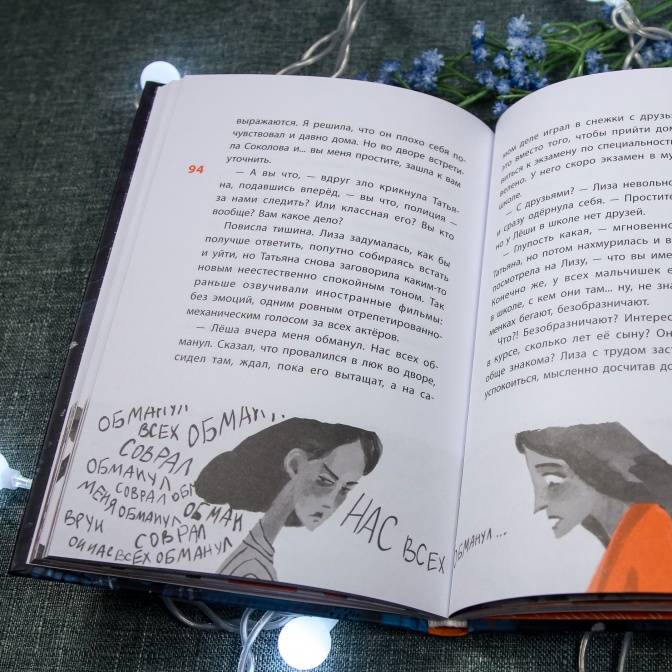 выражаются. Я решила, что он плохо себя по-
чувствовал и давно дома. Но во дворе встрети-
ла Соколова и... вы меня простите, зашла к вам
уточнить.
94
— А вы что, — вдруг зло крикнула Татья-
на, подавшись вперёд, — вы что, полиция —
за нами следить? Или классная его? Вы кто
вообще? Вам какое дело?
Повисла тишина. Лиза задумалась, как бы
получше ответить, попутно собираясь встать
и уйти, но Татьяна снова заговорила каким-то
новым неестественно спокойным тоном. Так
раньше озвучивали иностранные фильмы:
без эмоций, одним ровным отрепетированно-
механическим голосом за всех актёров.
— Лёша вчера меня обманул. Нас всех об-
манул. Сказал, что провалился в люк во дворе,
сидел там, ждал, пока его вытащат, а на са-
ОБМАНУЛ
ВСЕХ ОБМАНУЛ...
СОВРАЛ
ОБМАНУЛ
СОВРАЛ ОБМ
МЕНЯ ОБМАНУЛ ОБМАН
ВРУН
СОВРАЛ
ОН НАС ВСЕХ ОБМАНУЛ
НАС ВСЕХ
ОБМАНУЛ...
мом деле играл в снежки с друзья
это вместо того, чтобы прийти дом
виться к экзамену по специальност
велено. У него скоро экзамен в му
школе.
— С друзьями? — Лиза невольно
и сразу одёрнула себя. — Простите
но у Лёши в школе нет друзей.
— Глупость какая, — мгновенно
Татьяна, но потом нахмурилась и в
посмотрела на Лизу, — что вы име
Конечно же, у всех мальчишек е
в школе, с кем они там... ну, не зна
менках бегают, безобразничают.
Что?! Безобразничают? Интерес
в курсе, сколько лет её сыну? Он
обще знакома? Лиза с трудом заст
успокоиться, мысленно досчитав до